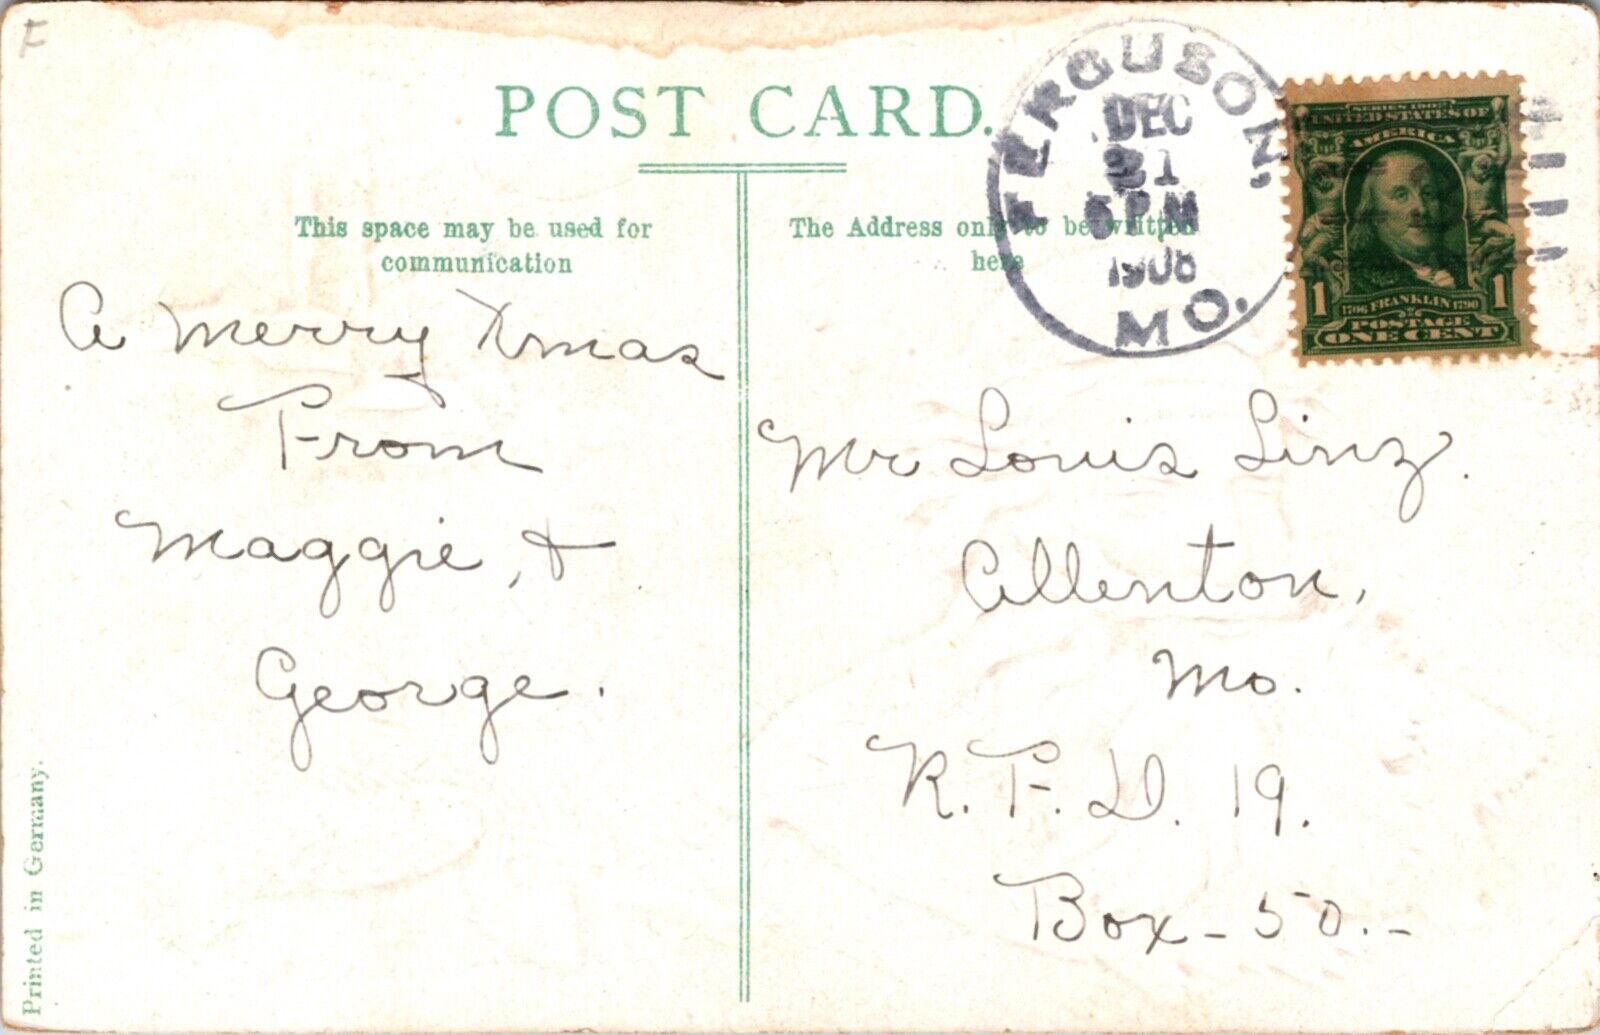 F
POST CARD.
FERGUSON,
DEC
21
5 PM
1908
MO.
SERIES 1902
UNITED STATES OF
AMERICA
1 1706 FRANKLIN 1790 1
POSTAGE
ONE CENT
This space may be used for
communication
The Address only to be written
here
A Merry Xmas
From
Maggie, &
George.
Mr Louis Linz.
Allenton,
Mo.
R.F.D. 19.
Box - 50.-
Printed in Germany.